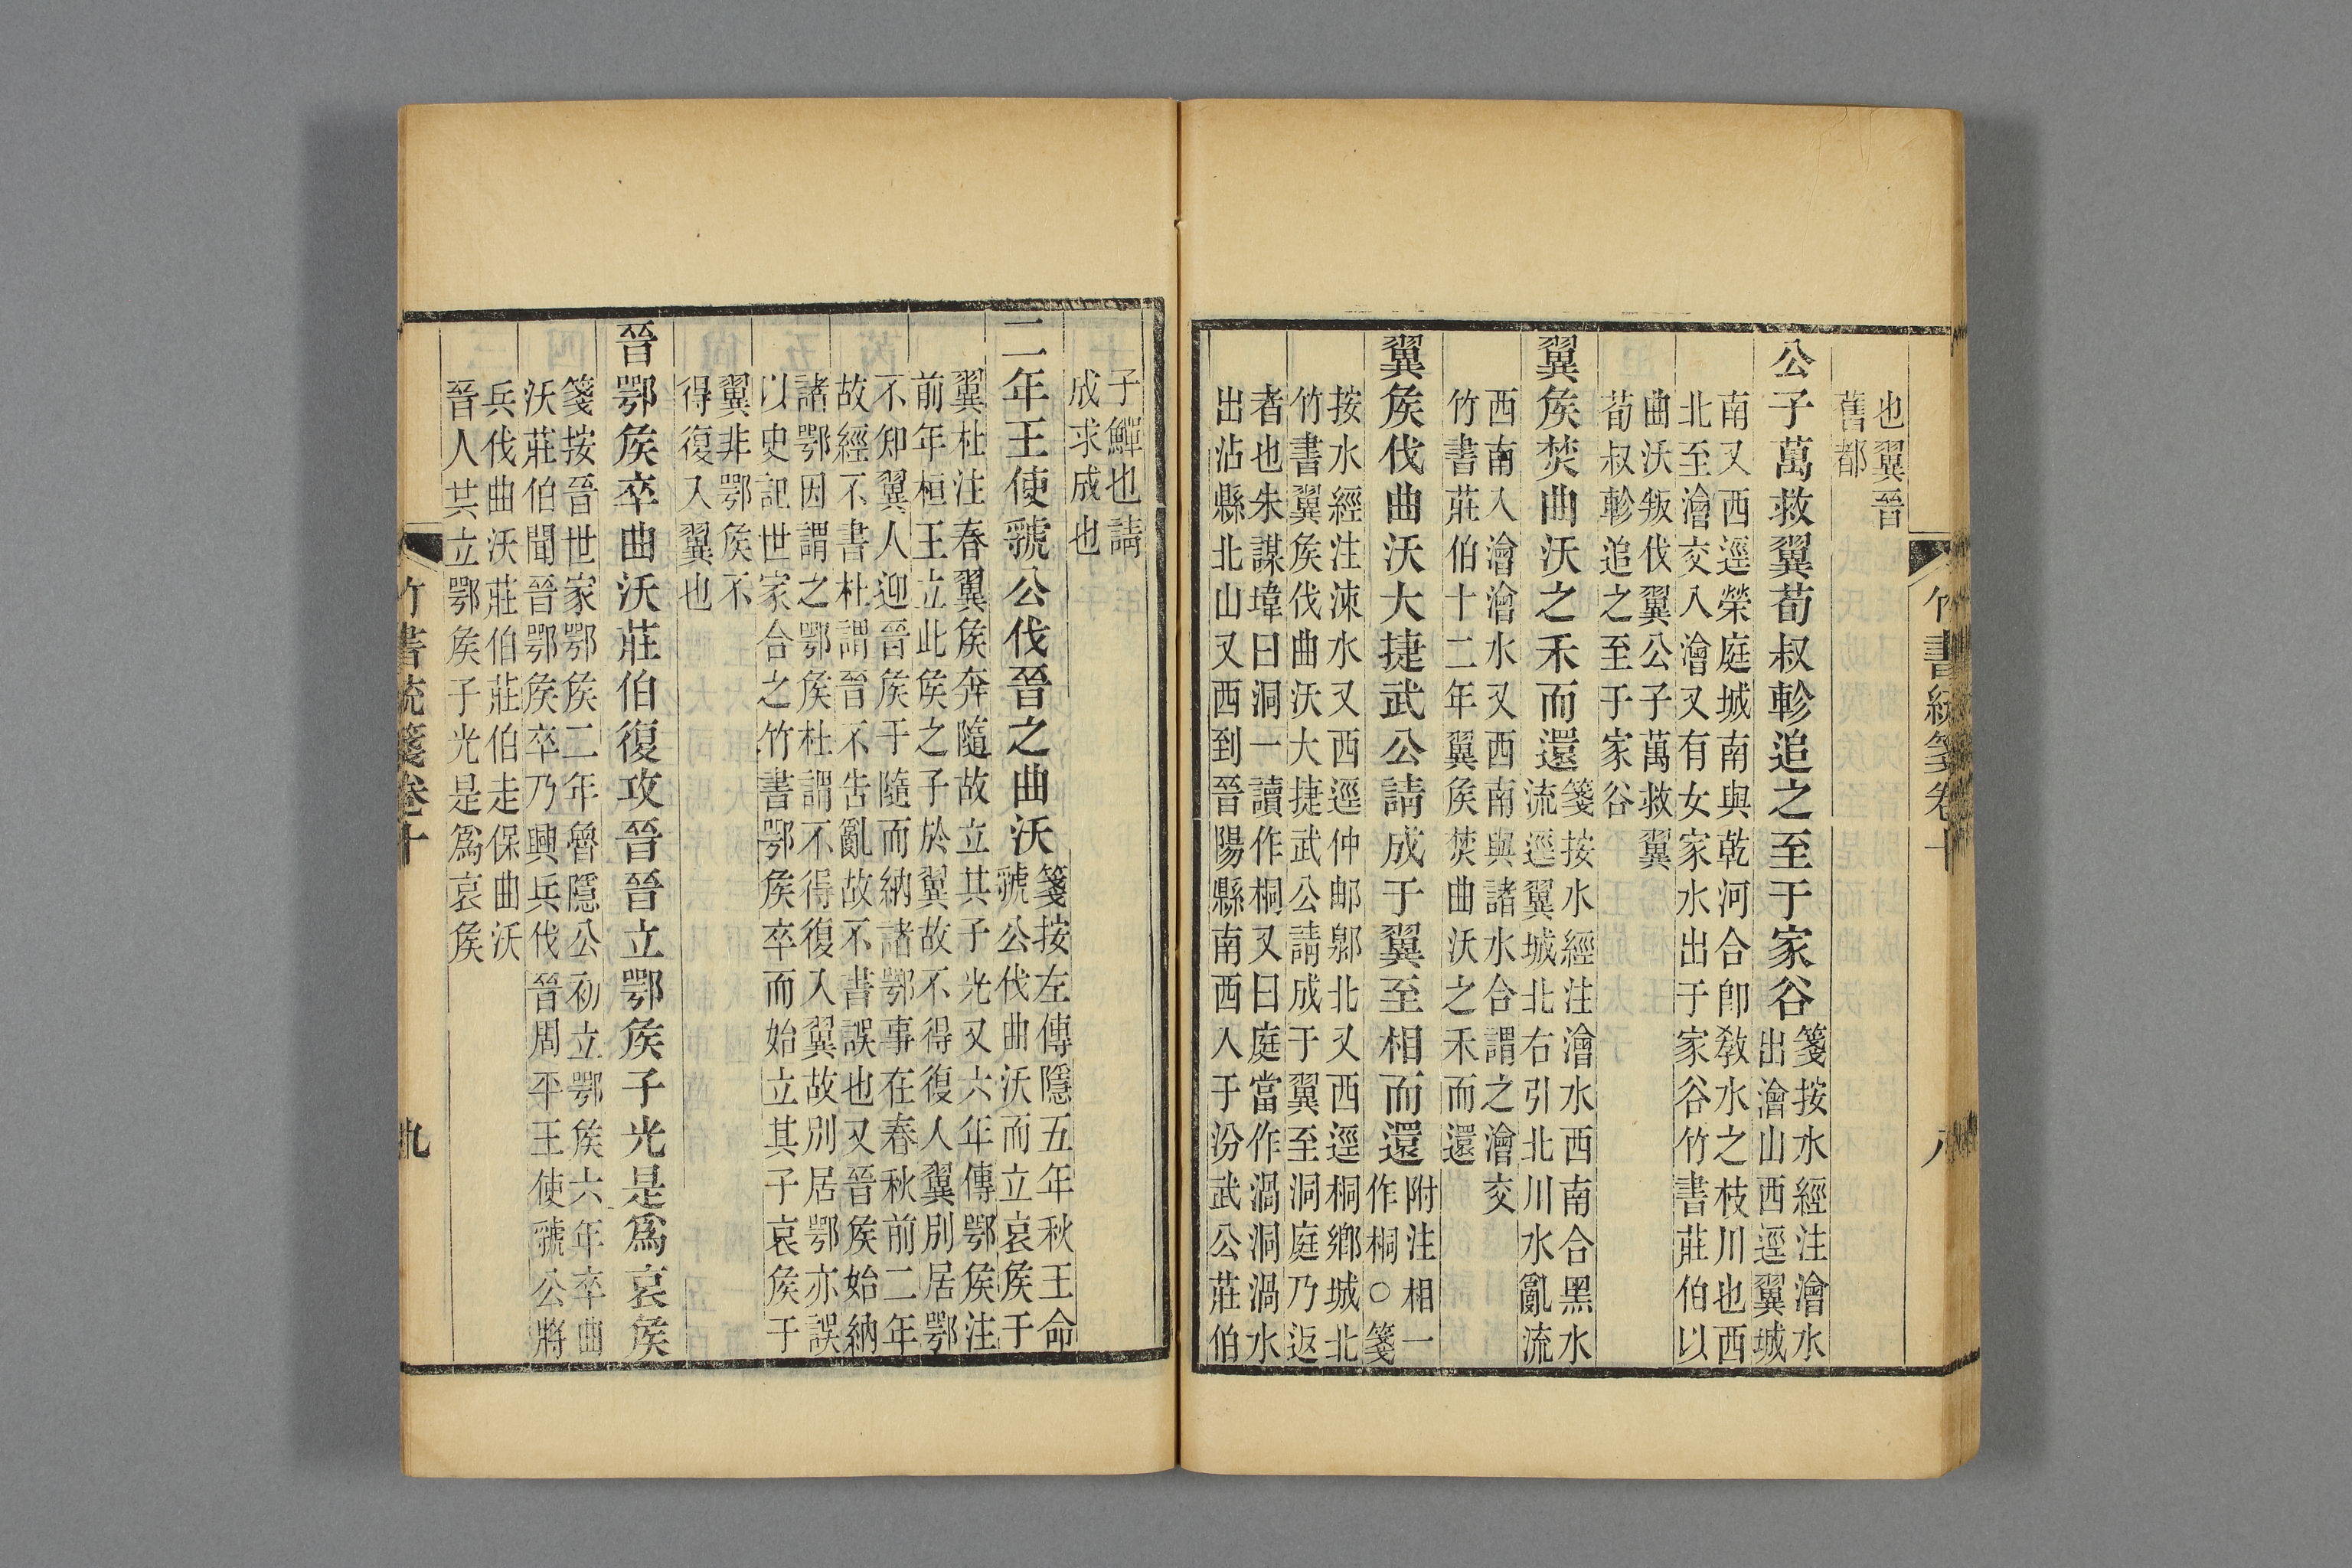 也翼晉
舊都
公子萬救翼荀叔軫追之至于家谷
箋按水經注澮水
出澮山西逕翼城
南又西逕榮庭城南與乾河合卽敎水之枝川也西
北至澮交入澮又有女家水出于家谷竹書莊伯以
曲沃叛伐翼公子萬救翼
荀叔軫追之至于家谷
翼矦焚曲沃之禾而還
箋按水經注澮水西南合黑水
流逕翼城北右引北川水亂流
西南入澮澮水又西南與諸水合謂之澮交
竹書莊伯十二年翼矦焚曲沃之禾而還
翼矦伐曲沃大捷武公請成于翼至相而還
附注相一
作桐○箋
按水經注涑水又西逕仲郵郥北又西逕桐鄉城北
竹書翼矦伐曲沃大捷武公請成于翼至洞庭乃返
者也朱謀㙔曰洞一讀作桐又曰庭當作渦洞渦水
出沾縣北山又西到晉陽縣南西入于汾武公莊伯
竹書統箋卷十
八
子鱓也請
成求成也
二年王使虢公伐晉之曲沃
箋按左傳隱五年秋王命
虢公伐曲沃而立哀矦于
翼杜注春翼矦奔隨故立其子光又六年傳鄂矦注
前年桓王立此矦之子於翼故不得復人翼別居鄂
不知翼人迎晉矦于隨而納諸鄂事在春秋前二年
故經不書杜謂晉不告亂故不書誤也又晉矦始納
諸鄂因謂之鄂矦杜謂不得復入翼故別居鄂亦誤
以史記世家合之竹書鄂矦卒而始立其子哀矦于
翼非鄂矦不
得復入翼也
晉鄂矦卒曲沃莊伯復攻晉晉立鄂矦子光是爲哀矦
箋按晉世家鄂矦二年魯隱公初立鄂矦六年卒曲
沃莊伯聞晉鄂矦卒乃興兵伐晉周平王使虢公將
兵伐曲沃莊伯莊伯走保曲沃
晉人共立鄂矦子光是爲哀矦
竹書統箋卷十
九